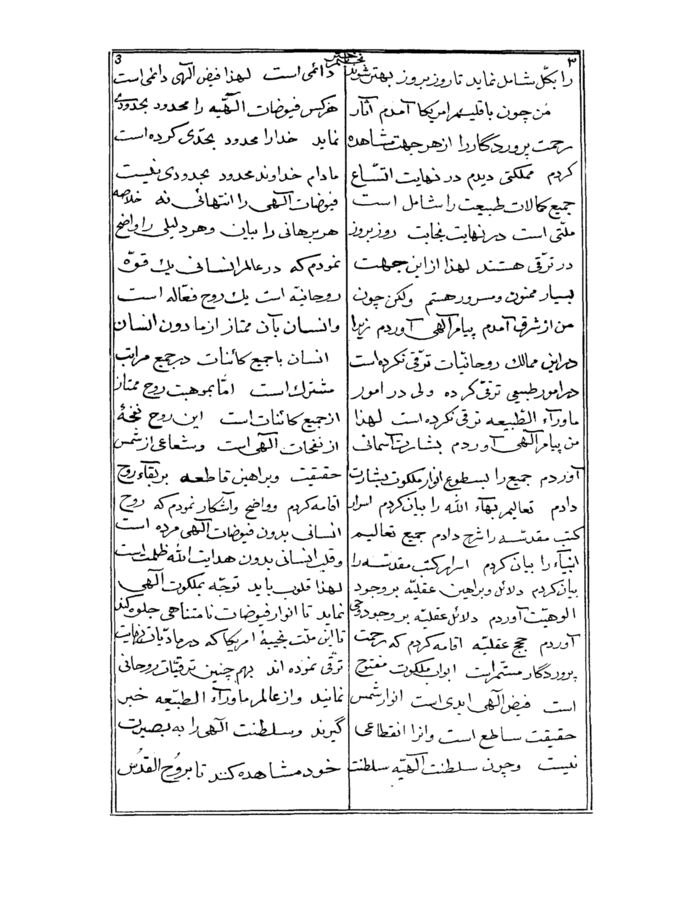 ۳
نجم باختر
3
را بکلّ شامل نماید تا روز بروز بهتر شوید
من چون باقلیم امریکا آمدم آثار
رحمت پروردگار را از هر جهت مشاهده
کردم مملکتی دیدم در نهایت اتّساع
جمیع کمالات طبیعت را شامل است
ملّتی است در نهایت نجابت روز بروز
در ترقی هستند لهذا از این جهت
بسیار ممنون و مسرور هستم ولکن چون
من از شرق آمدم پیام الهی آوردم زیرا
در این ممالک روحانیات ترقی نکرده است
در امور طبیعی ترقی کرده ولی در امور
ماورآء الطّبیعه ترقی نکرده است لهذا
من پیام الهی آوردم بشارت آسمانی
آوردم جمیع را بسطوع انوار ملکوت بشارت
دادم تعالیم بهآء الله را بیان کردم اسرار
کتب مقدّسه را شرح دادم جمیع تعالیم
انبیآء را بیان کردم اسرار کتب مقدّسه را
بیان کردم دلائل و براهین عقلیّه بر وجود
الوهیّت آوردم دلائل عقلیّه بر وجود وحی
آوردم حجج عقلیّه اقامه کردم که رحمت
پروردگار مستمرّ است ابواب ملکوت مفتوح
است فیض الهی ابدی است انوار شمس
حقیقت ساطع است و انرا انقطاعی
نیست وچون سلطنت الهیّه سلطنت
دائمی است لهذا فیض الهی دائمی است
هر کس فیوضات الهیّه را محدود بحدودی
نماید خدا را محدود بحدّی کرده است
مادام خداوند محدود بحدودی نیست
فیوضات الهی را انتهائی نه خلاصه
هر برهانی را بیان و هر دلیلی را واضح
نمودم که در عالم انسانی یک قوّه
روحانیّه است یک روح فعّاله است
وانسان بآن ممتاز از مادون انسان
انسان با جمیع کائنات در جمیع مراتب
مشترک است امّا بموهبت روح ممتاز
از جمیع کائنات است این روح نفحهٔ
از نفحات الهی است و شعاعی از شمس
حقیقت وبراهین قاطعه بر بقاء روح
اقامه کردم و واضح و آشکار نمودم که روح
انسانی بدون فیوضات الهی مرده است
وقلب انسانی بدون هدایت الله ظلمت است
لهذا قلوب باید توجّه بملکوت الهی
نماید تا انوار فیوضات نامتناهی جلوه کند
تا این ملّت نجیبهٔ امریکا که در مادّیّات نهایت
ترقی نموده اند بهم چنین ترقیّات روحانی
نمایند و از عالم ماورآء الطّبیعه خبر
گیرند وسلطنت الهی را به بصیرت
خود مشاهده کنند تا بروح القدس